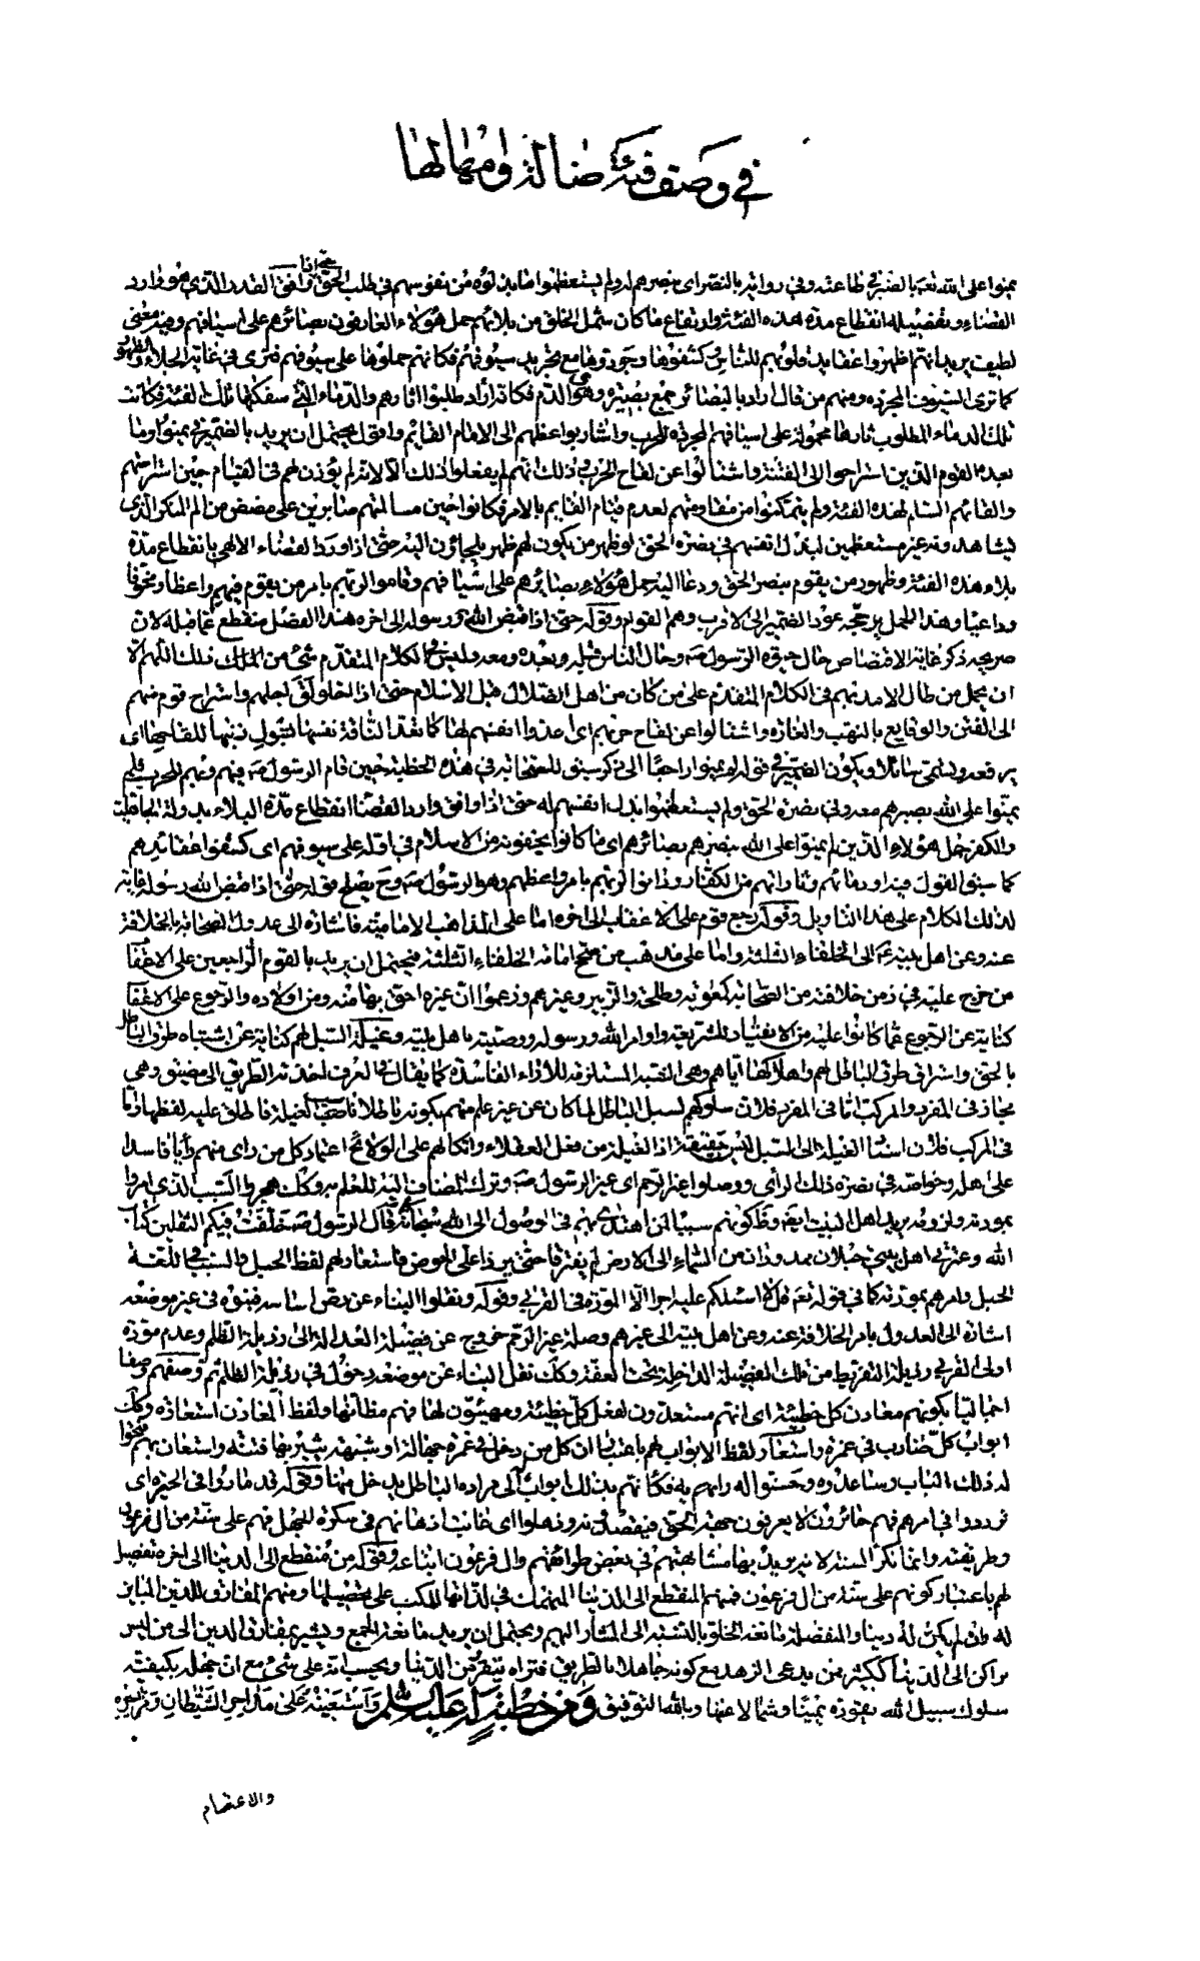 في وصف فئة ضالة وامهالها
يمنوا على الله تعالى بالصبر في طاعته وفي رواية بالنصر اى بنصرهم له ولم يستعظموا ما بذلوه من نفوسهم في طلب الحق حتى اذا وافق القدر الذي هو وارد
القضاء وتفصيله انقطاع مدة هذه الفئة وارتفاع ما كان شمل الخلق من بلائهم حمل هؤلاء العارفون بصائرهم على اسيافهم وفيه معنى
لطيف يريد انهم اظهروا عقايد قلوبهم للناس وكشفوها وجردوها مع تجريد سيوفهم فكانهم حملوها على سيوفهم فترى في غاية الجلاء والظهور
كما ترى السيوف المجردة ومنهم من قال اراد بالبصائر جمع بصيرة وهي الدم فكانه اراد طلبوا ثارهم والدماء التي سفكها تلك الفئة فكانت
تلك الدماء المطلوب ثارها محمولة على اسيافهم المجردة للحرب واشار بواعظهم الى الامام القايم واقول يحتمل ان يريد بالضمير في يمنوا وما
بعده القوم الذين استراحوا الى الفتنة واشتالوا عن لقاح الحرب وذلك انهم لم يفعلوا ذلك الا لانه لم يؤذن لهم في القيام حين استراحتهم
والقائهم السلم لهذه الفئة ولم يتمكنوا من مقاومتهم لعدم قيام القايم بالامر فكانوا حين مسالمتهم صابرين على مضض من الم المنكر الذي
يشاهدونه غير مستعظمين لبذل انفسهم في نصرة الحق لو ظهر من يكون لهم ظهر يلجاؤن اليه حتى اذا ورد القضاء الالهي بانقطاع مدة
بلاء هذه الفئة وظهور من يقوم بنصر الحق ودعا اليه حمل هؤلاء بصائرهم على اسيافهم وقاموا لربهم بامر من يقوم فيهم واعظا ومخوفا
وداعيا وهذا الحمل يرجحه عود الضمير الى الاقرب وهم القوم وقوله حتى اذا قبض الله رسوله الى اخره هذا الفصل منقطع عما قبله لان
صريحه ذكر غاية الاقتصاص حال حيوة الرسول صه وحال الناس قبله وبعده ومعه وليس في الكلام المتقدم شئ من ذلك اللهم الا
ان يحمل من طال الامد بهم في الكلام المتقدم على من كان من اهل الضلال قبل الاسلام حتى اذا اخلولق اجلهم واستراح قوم منهم
الى الفتن والوقايع بالنهب والغارة واشتالوا عن لقاح حربهم اى اعدوا انفسهم لها كما تعد الناقة نفسها بشول ذنبها للقاحها اى
يرفعه ويسمى شائلا ويكون الضمير في قوله لم يمنوا راجعا الى ذكر سبق للصحابة في هذه الخطبة حين قام الرسول صه فيهم وبهم للحرب فلم
يمنوا على الله بصبرهم معه وفي نصرة الحق ولم يستعظموا بذل انفسهم له حتى اذا وافق وارد القضا انقطاع مدة البلاء بدولة الجاهلية
والكفر حمل هؤلاء الذين لم يمنوا على الله بنصرهم بصائرهم اى ما كانوا يخفونه من الاسلام في اوله على سيوفهم اى كشفوا عقائدهم
كما سبق القول فيه او دمائهم وثاراتهم من الكفار ودانوا لربهم بامر واعظهم وهو الرسول صه وح يصلح قوله حتى اذا قبض الله رسوله غاية
لذلك الكلام على هذا التاويل وقوله رجع قوم على الاعقاب الى اخره اما على المذاهب الامامية فاشارة الى عدول الصحابة بالخلافة
عنه وعن اهل بيته عم الى الخلفاء الثلثة واما على مذهب من صحح امامة الخلفاء الثلثة فيحتمل ان يريد بالقوم الراجعين على الاعقاب
من خرج عليه في زمن خلافته من الصحابة كمعوية وطلحة والزبير وغيرهم وزعموا ان غيره احق بها منه ومن اولاده والرجوع على الاعقاب
كناية عن الرجوع عما كانوا عليه من الانقياد للشريعة واوامر الله ورسوله ووصيته باهل بيته وغيلة السبل لهم كناية عن اشتباه طرق الباطل
بالحق واستراق طرق الباطل لهم واهلاكها اياهم وهي الشبه المستلزمة للاراء الفاسدة كما يقال في العرف اخذته الطريق الى مضيق وهي
مجاز في المفرد والمركب اما في المفرد فلان سلوكهم لسبل الباطل لما كان عن غير علم منهم بكونه باطلا ناسب الغيلة فاطلق عليه لفظها واما
في المركب فلان اسناد الغيلة الى السبل ليس حقيقة اذ الغيلة من فعل العقلاء واتكالهم على الولائج اعتماد كل من راى منهم رأيا فاسدا
على اهله وخواصه في نصرة ذلك الرأى ووصلوا غير الرحم اى غير الرسول صه وترك المضاف اليه للعلم به وكك هجروا السبب الذي امروا
بمودته ولزومه يريد اهل البيت ايضا وظ كونهم سببا لمن اهتدى بهم في الوصول الى الله سبحانه كما قال الرسول صه خلفت فيكم الثقلين كتاب
الله وعترتي اهل بيتي حبلان ممدودان من السماء الى الارض لم يفترقا حتى يردا على الحوض فاستعار لهم لفظ الحبل والسبب في اللغة
الحبل وامرهم بمودته كما في قوله تعالى قل لا اسئلكم عليه اجرا الا المودة في القربى وقوله ونقلوا البناء عن رص اساسه فبنوه في غير موضعه
اشارة الى العدول بامر الخلافة عنه وعن اهل بيته الى غيرهم وصلة غير الرحم خروج عن فضيلة العدالة الى رذيلة الظلم وعدم مودة
اولى القربى رذيلة التفريط من تلك الفضيلة الداخلة تحت العفة وكك نقل البناء عن موضعه دخول في رذيلة الظلم ثم وصفهم وصفا
اجماليا بكونهم معادن كل خطيئة اى انهم مستعدون لفعل كل خطيئة ومهيئون لها فهم مظانها ولفظ المعادن استعارة وكك
ابواب كل ضارب في غمرة واستعار لفظ الابواب لهم باعتبار ان كل من دخل في غمرة جهالة او شبهة يثير بها فتنة واستعان بهم فتحوا
له ذلك الباب وساعدوه وحسنوا له رايه فكانهم بذلك ابواب الى مراده الباطل يدخل منها وقوله قد ماروا في الحيرة اى
ترددوا في امرهم فهم حائرون لا يعرفون جهة الحق فيقصدونه وذهلوا اى غابت اذهانهم في سكرة الجهل فهم على سنة من ال فرعون
وطريقته وانما نكر السنة لانه يريد بها مشابهتهم في بعض طرائقهم وال فرعون اتباعه وقوله من منقطع الى الدنيا الى اخره تفصيل
لهم باعتبار كونهم على سنة من ال فرعون فمنهم المنقطع الى الدنيا المنهمك في لذاتها المكب على تحصيلها ومنهم المفارق للدين المباين
له وان لم يكن له دنيا والمنفصلة مانعة الخلو بالنسبة الى المشار اليهم ويحتمل ان يريد مانعة الجمع ويشير بمفارق الدين الى من ليس
براكن الى الدنيا ككثير ممن يدعي الزهد مع كونه جاهلا بالطريق فتراه ينفر من الدنيا ويحسب انه على شئ مع ان جهله بكيفية
سلوك سبيل الله يقوده يمينا وشمالا عنها وبالله التوفيق ومن خطبة له عليه السلم واستعينه على مداحر الشيطان ومزاجره
والاعتصام